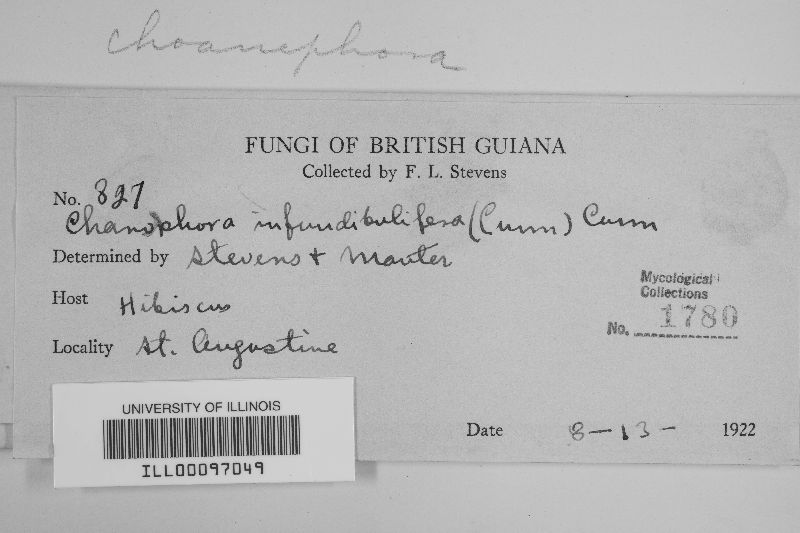 choanephora
FUNGI OF BRITISH GUIANA
Collected by F. L. Stevens
No. 827
Chanophora infundibulifera (Curr) Curr
Determined by Stevens + Manter
Host Hibiscus
Mycological
Collections
No. 1780
Locality St. Augustine
UNIVERSITY OF ILLINOIS
ILL00097049
Date 8-13- 1922